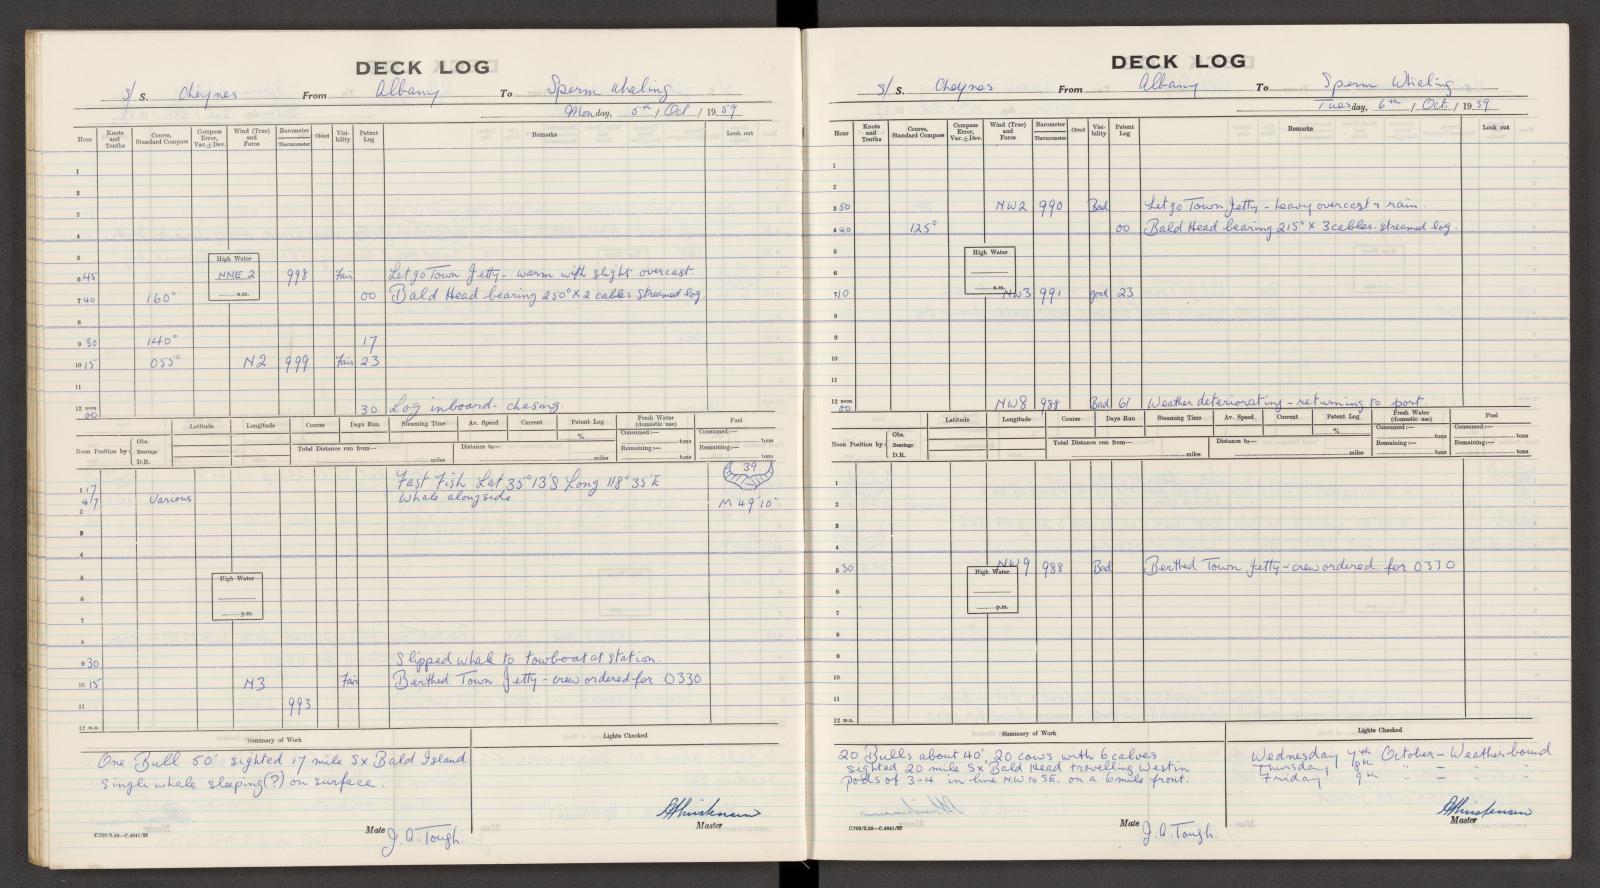 DECK LOG
S/ S. Cheynes From Albany To Sperm Whaling
Monday, 5th / Oct / 1959
Hour Knots and Tenths Course, Standard Compass Compass Error, Var.±Dev. Wind (True) and Force Barometer Thermometer Cloud Visibility Patent Log Remarks Look out
1
2
3
4
5
High Water
6 45 NNE 2 998 Fair Let go Town Jetty - warm with slight overcast.
a.m.
7 40 160° 00 Bald Head bearing 250° x 2 cables streamed log.
8
9 30 140° 17
10 15 055° N2 999 Fair 23
11
12 noon 00 30 Log inboard - chasing.
Latitude Longitude Course Days Run Steaming Time Av. Speed Current Patent Log % Fresh Water (domestic use) Fuel
Noon Position by Obs. Bearings D.R. Total Distance run from— miles Distance to— miles Consumed:— tons Remaining:— tons Consumed:— tons Remaining:— tons
1 17 Fast Fish Lat 35° 13'S Long 118° 35'E 39
47 Various Whale alongside M 49'10"
2
3
4
5
High Water
6
p.m.
7
8
9 30 Slipped whale to towboat at station.
10 15 N3 Fair Berthed Town Jetty - crew ordered for 0330
11 993
12 m.n.
Summary of Work Lights Checked
One Bull 50' sighted 17 mile S x Bald Island
single whale sleeping(?) on surface.
Master
Mate J. A. Tough.
C.703/2.58—C.4041/57
DECK LOG
S/ S. Cheynes From Albany To Sperm Whaling
Tuesday, 6th / Oct. / 1959
Hour Knots and Tenths Course, Standard Compass Compass Error, Var.±Dev. Wind (True) and Force Barometer Thermometer Cloud Visibility Patent Log Remarks Look out
1
2
3 50 NW2 990 Bad Let go Town Jetty - heavy overcast & rain.
4 40 125° 00 Bald Head bearing 215° x 3 cables. streamed log.
5
High Water
6
a.m.
7 10 NW3 991 good 23
8
9
10
11
12 noon 00 NW8 988 Bad 61 Weather deteriorating - returning to port.
Latitude Longitude Course Days Run Steaming Time Av. Speed Current Patent Log % Fresh Water (domestic use) Fuel
Noon Position by Obs. Bearings D.R. Total Distance run from— miles Distance to— miles Consumed:— tons Remaining:— tons Consumed:— tons Remaining:— tons
1
2
3
4
5 30 NW9 988 Bad Berthed Town Jetty - crew ordered for 0330
High Water
6
p.m.
7
8
9
10
11
12 m.n.
Summary of Work Lights Checked
20 Bulls about 40', 20 cows with 6 calves
sighted 20 mile S x Bald Head travelling West in
pods of 3-4 in line NW to SE. on a 6 mile front.
Wednesday 7th October - Weatherbound
Thursday 8th " - "
Friday 9th " - "
Master
Mate J. A. Tough.
C.703/2.58—C.4041/57